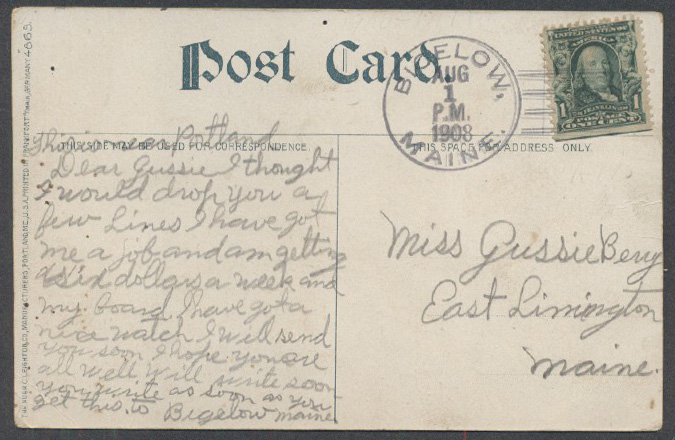 Post Card
BIGELOW,
AUG
1
P.M.
1908
MAINE.
UNITED STATES OF
AMERICA
1 FRANKLIN 1
POSTAGE
ONE CENT
THIS SIDE MAY BE USED FOR CORRESPONDENCE.
THIS SPACE FOR ADDRESS ONLY.
This is near Portland
Dear Gussie I thought
I would drop you a
few Lines I have got
me a job and am getting
six dollars a week and
my board I have got a
nice watch I will send
you soon I hope you are
all well will write soon
you write as soon as you
get this. to Bigelow maine
Miss Gussie Berry
East Limington
maine.
THE HUGH C. LEIGHTON CO., MANUFACTURERS, PORTLAND, ME., U.S.A. PRINTED IN FRANKFORT MAIN, GERMANY 4865